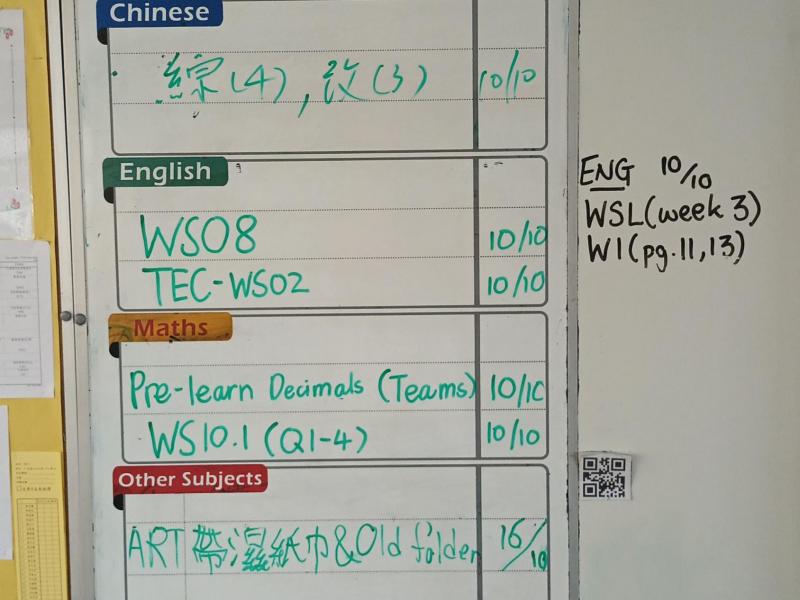 Chinese
綜(4), 改(3) 10/10
English
WS08 10/10
TEC-WS02 10/10
Maths
Pre-learn Decimals (Teams) 10/10
WS10.1 (Q1-4) 10/10
Other Subjects
ART 帶濕紙巾&Old folder 16/10
ENG 10/10
WSL(week 3)
W1(pg.11,13)